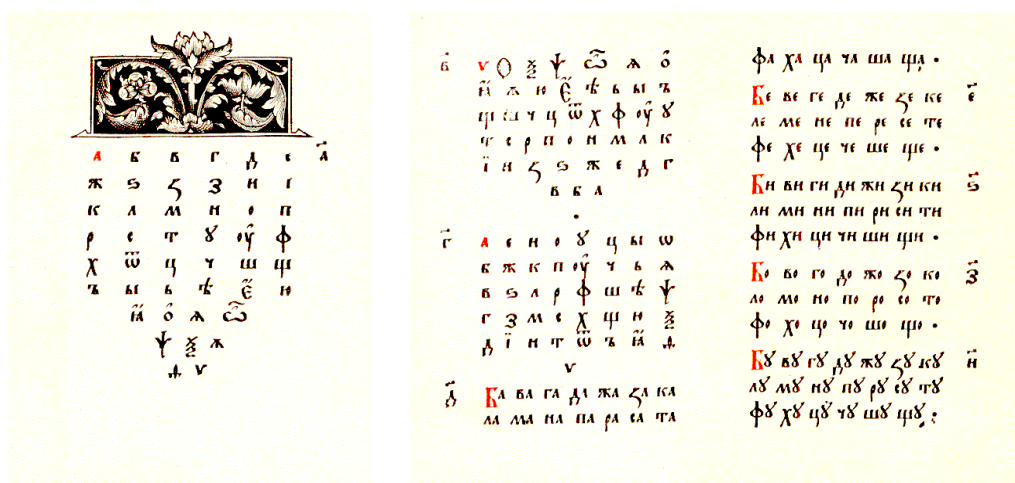 а б в г д е а҃
ж ѕ ꙁ з и і
к л м н о п
р с т ꙋ оу ф
х ѿ ц ч ш щ
ъ ы ь ѣ є ю
ꙗ о ѧ ѽ
ѱ ѯ ѫ
ѳ ѵ
б҃ ѵ ѳ ѯ ѱ ѽ ѧ о
ꙗ ѫ ю є ѣ ь ы ъ
щ ш ч ц ѿ х ф оу ꙋ
т с р п о н м л к
ї и ꙁ ѕ ж е д г
в б а
г҃ а е и о ꙋ ц ы ѡ
б ж к п оу ч ь ѧ
в ѕ л р ф ш ѣ ѱ
г з м с х щ ю ѯ
д ї н т ѿ ъ ꙗ ѳ
ѵ
д҃ Ба ва га да жа ꙁа ка
ла ма на па ра са та
фа ха ца ча ша ща .
Бе ве ге де же ꙁе ке е҃
ле ме не пе ре се те
фе хе це че ше ще .
Би ви ги ди жи ꙁи ки ѕ҃
ли ми ни пи ри си ти
фи хи ци чи ши щи .
Бо во го до жо ꙁо ко з҃
ло мо но по ро со то
фо хо цо чо шо що .
Бꙋ вꙋ гꙋ дꙋ жꙋ ꙁꙋ кꙋ и҃
лꙋ мꙋ нꙋ пꙋ рꙋ сꙋ тꙋ
фꙋ хꙋ цꙋ чꙋ шꙋ щꙋ